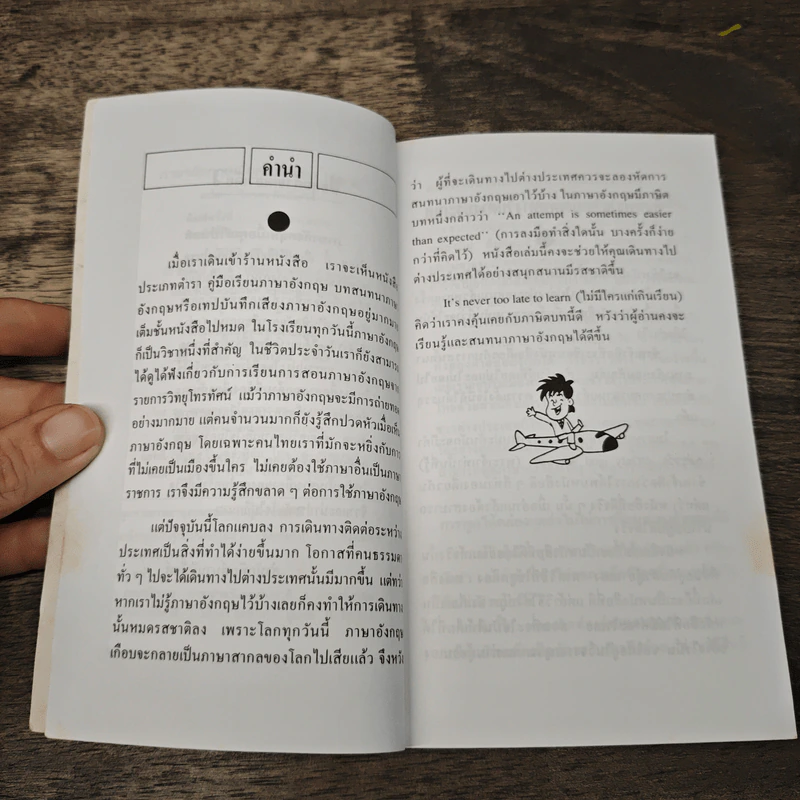 คำนำ
เมื่อเราเดินเข้าร้านหนังสือ เราจะเห็นหนังสือ
ประเภทตำรา คู่มือเรียนภาษาอังกฤษ บทสนทนาภาษา
อังกฤษหรือเทปบันทึกเสียงภาษาอังกฤษอยู่มากมาย
เต็มชั้นหนังสือไปหมด ในโรงเรียนทุกวันนี้ภาษาอังกฤษ
ก็เป็นวิชาหนึ่งที่สำคัญ ในชีวิตประจำวันเราก็ยังสามารถ
ได้ดูได้ฟังเกี่ยวกับการเรียนการสอนภาษาอังกฤษจาก
รายการวิทยุโทรทัศน์ แม้ว่าภาษาอังกฤษจะมีการถ่ายทอด
อย่างมากมาย แต่คนจำนวนมากก็ยังรู้สึกปวดหัวเมื่อเห็น
ภาษาอังกฤษ โดยเฉพาะคนไทยเราที่มักจะหยิ่งกับการ
ที่ไม่เคยเป็นเมืองขึ้นใคร ไม่เคยต้องใช้ภาษาอื่นเป็นภาษา
ราชการ เราจึงมีความรู้สึกขลาด ๆ ต่อการใช้ภาษาอังกฤษ
แต่ปัจจุบันนี้โลกแคบลง การเดินทางติดต่อระหว่าง
ประเทศเป็นสิ่งที่ทำได้ง่ายขึ้นมาก โอกาสที่คนธรรมดา
ทั่ว ๆ ไปจะได้เดินทางไปต่างประเทศนั้นมีมากขึ้น แต่ทว่า
หากเราไม่รู้ภาษาอังกฤษไว้บ้างเลยก็คงทำให้การเดินทาง
นั้นหมดรสชาติลง เพราะโลกทุกวันนี้ ภาษาอังกฤษ
เกือบจะกลายเป็นภาษาสากลของโลกไปเสียแล้ว จึงหวัง
ว่า ผู้ที่จะเดินทางไปต่างประเทศควรจะลองหัดการ
สนทนาภาษาอังกฤษเอาไว้บ้าง ในภาษาอังกฤษมีภาษิต
บทหนึ่งกล่าวว่า “An attempt is sometimes easier
than expected” (การลงมือทำสิ่งใดนั้น บางครั้งก็ง่าย
กว่าที่คิดไว้) หนังสือเล่มนี้คงจะช่วยให้คุณเดินทางไป
ต่างประเทศได้อย่างสนุกสนานมีรสชาติขึ้น
It's never too late to learn (ไม่มีใครแก่เกินเรียน)
คิดว่าเราคงคุ้นเคยกับภาษิตบทนี้ดี หวังว่าผู้อ่านคงจะ
เรียนรู้และสนทนาภาษาอังกฤษได้ดีขึ้น